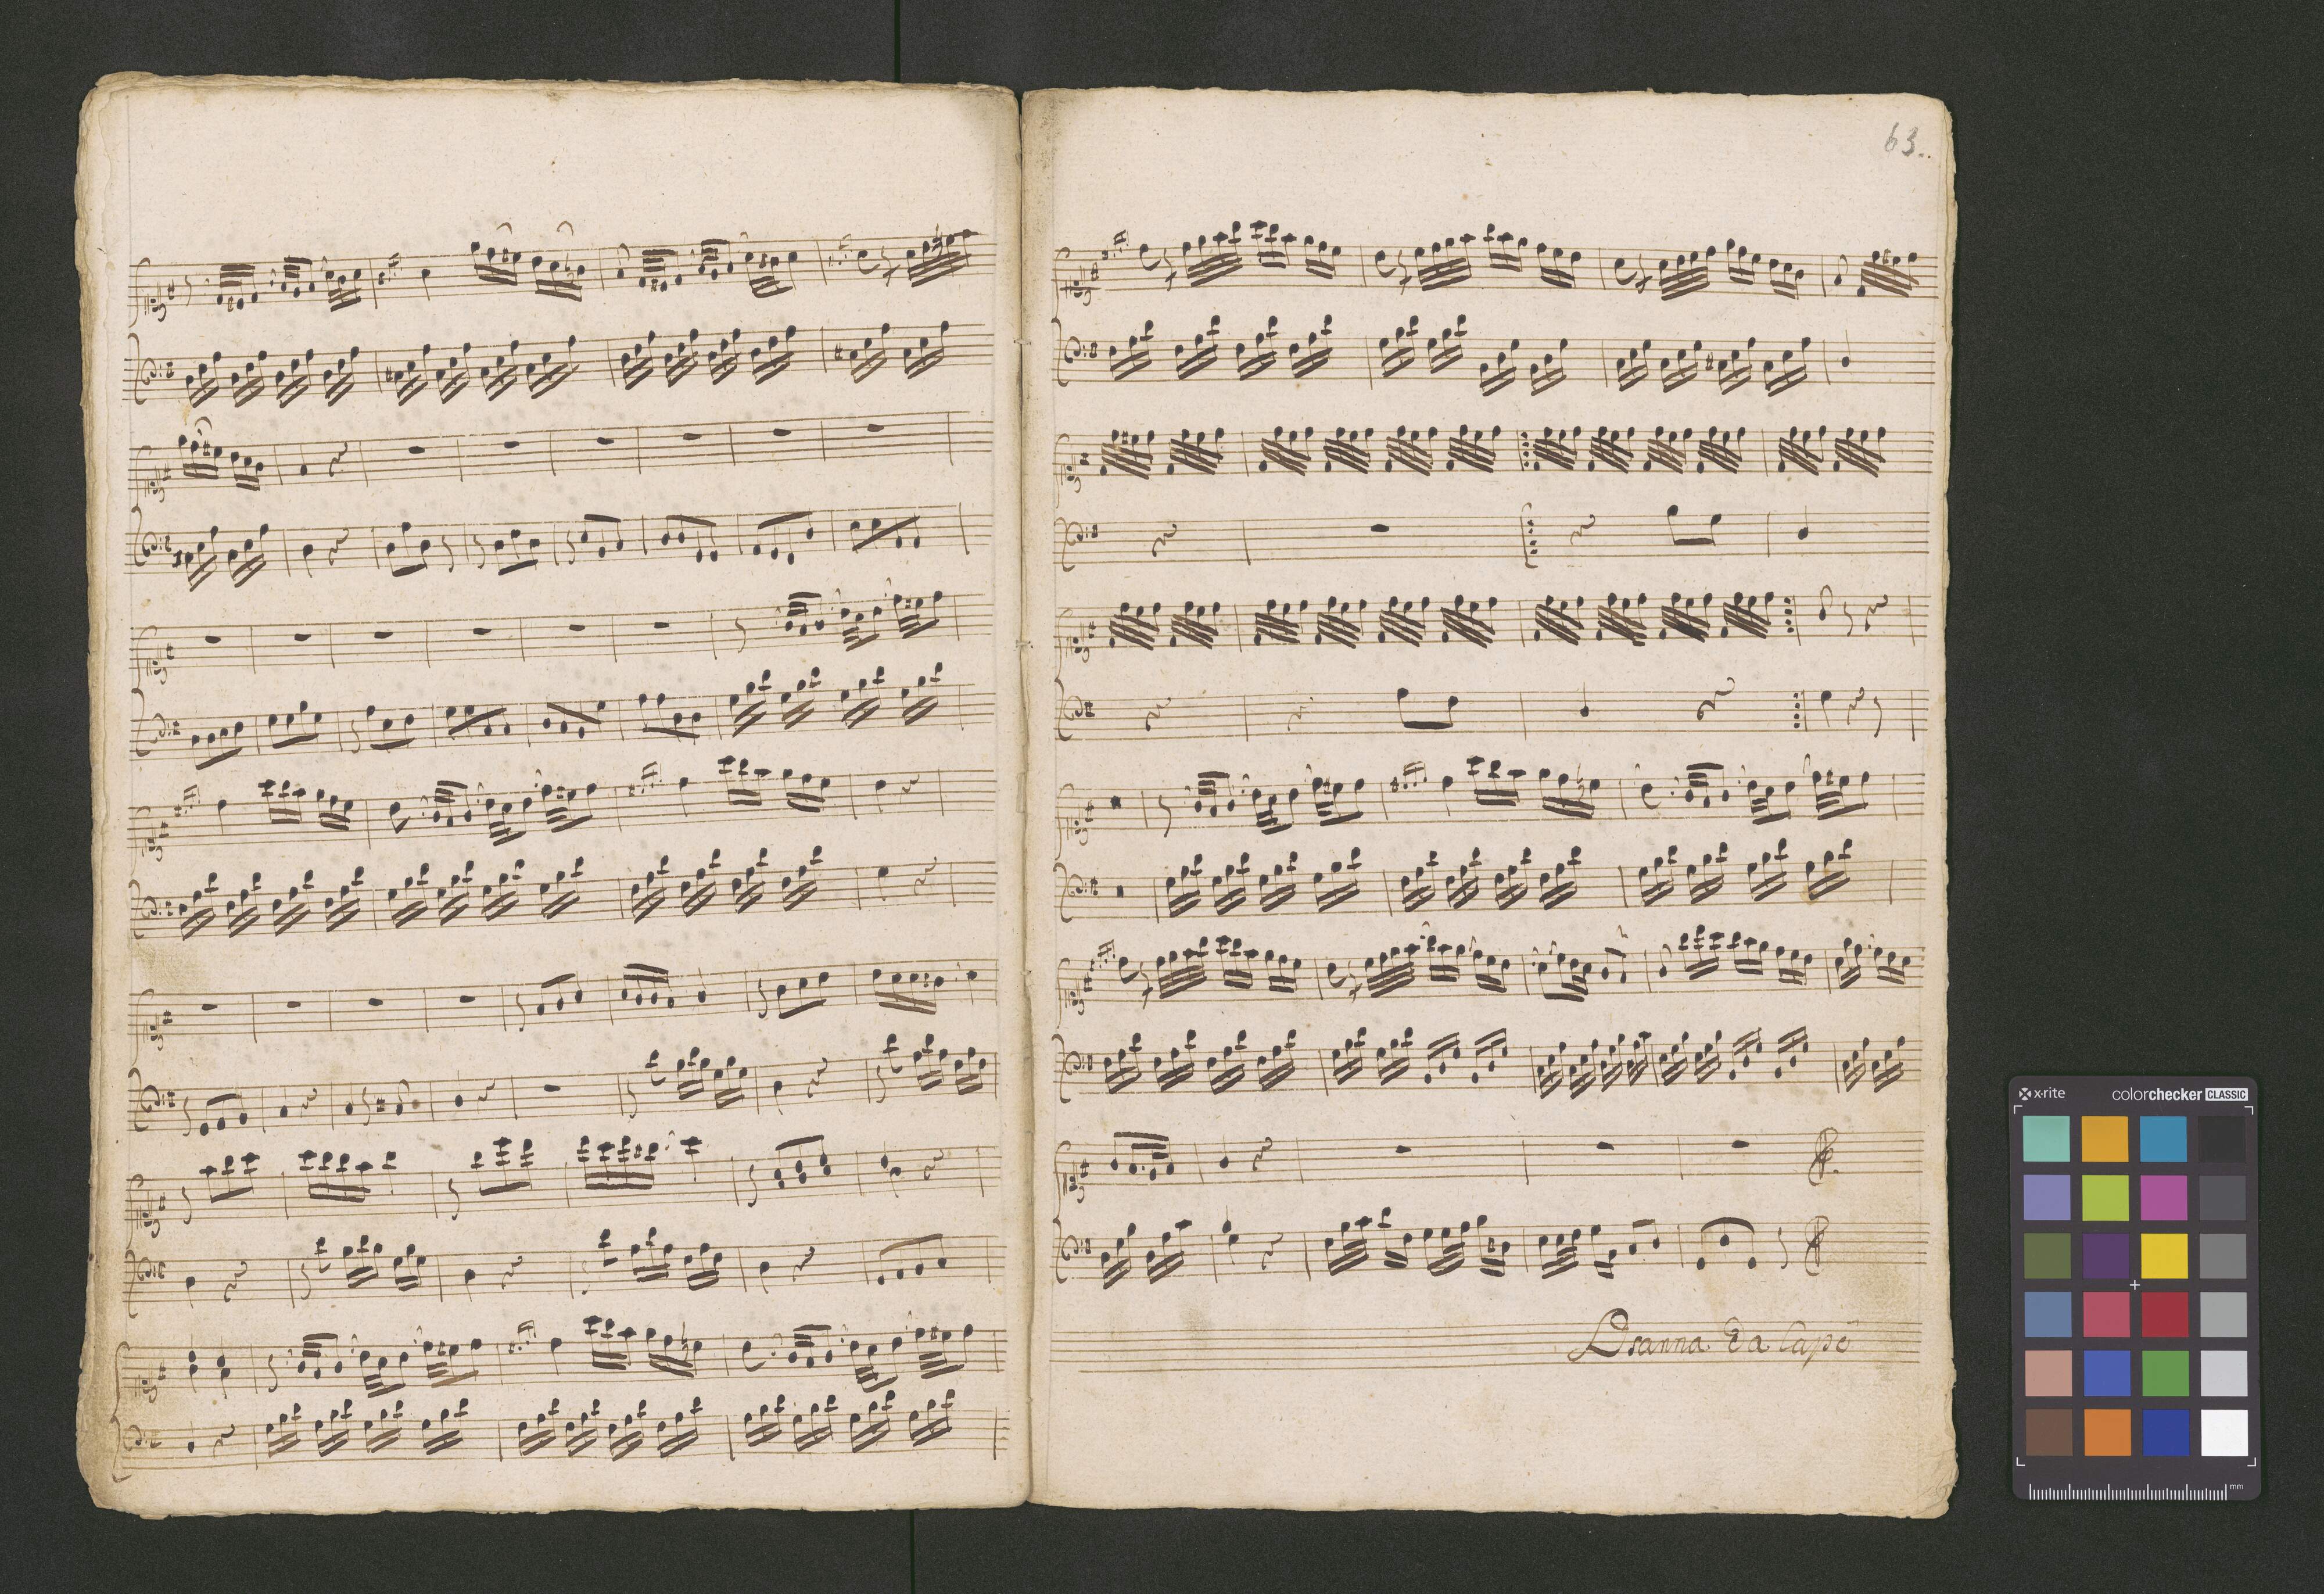 63.
Osanna Da Capo
x-rite
colorchecker CLASSIC
mm